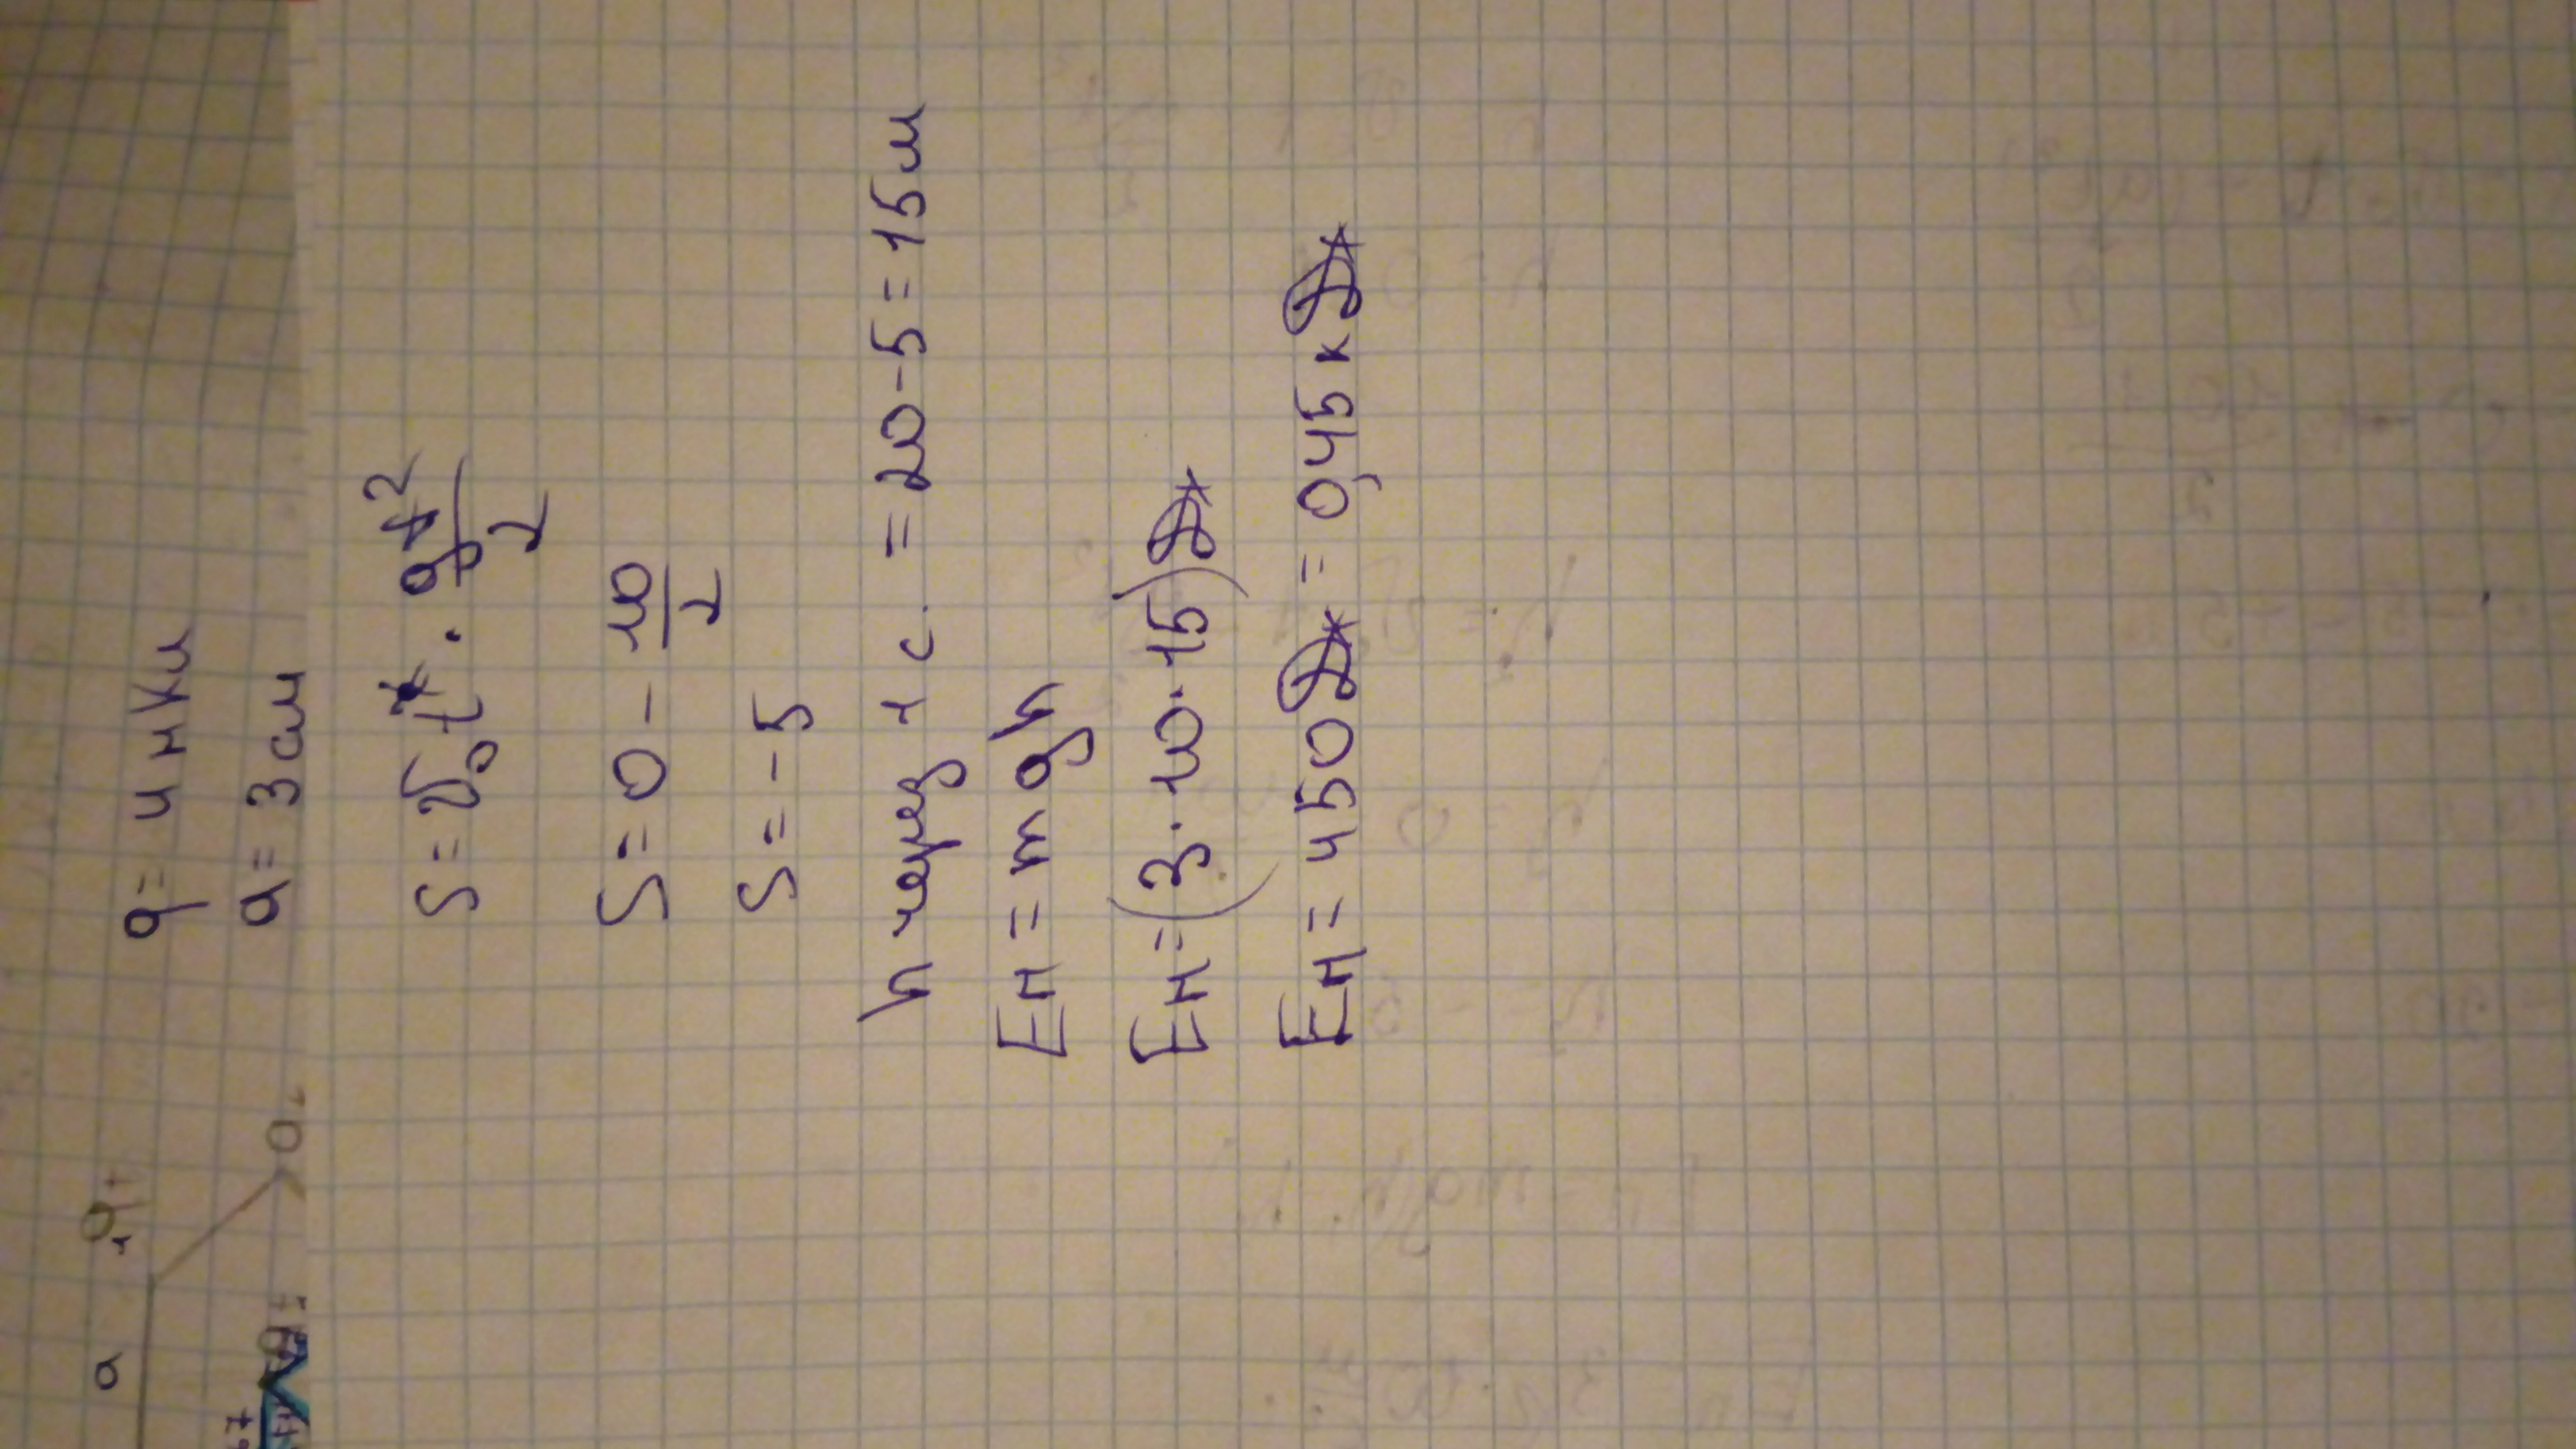 q = 4 нКл
a = 3 см
S = v₀t · gt²/2
S = 0 - 10/2
S = -5
h через 1 с. = 20-5 = 15м
Eн = mgh
Eн = (3·10·15) Дж
Eн = 450 Дж = 0,45 кДж
a